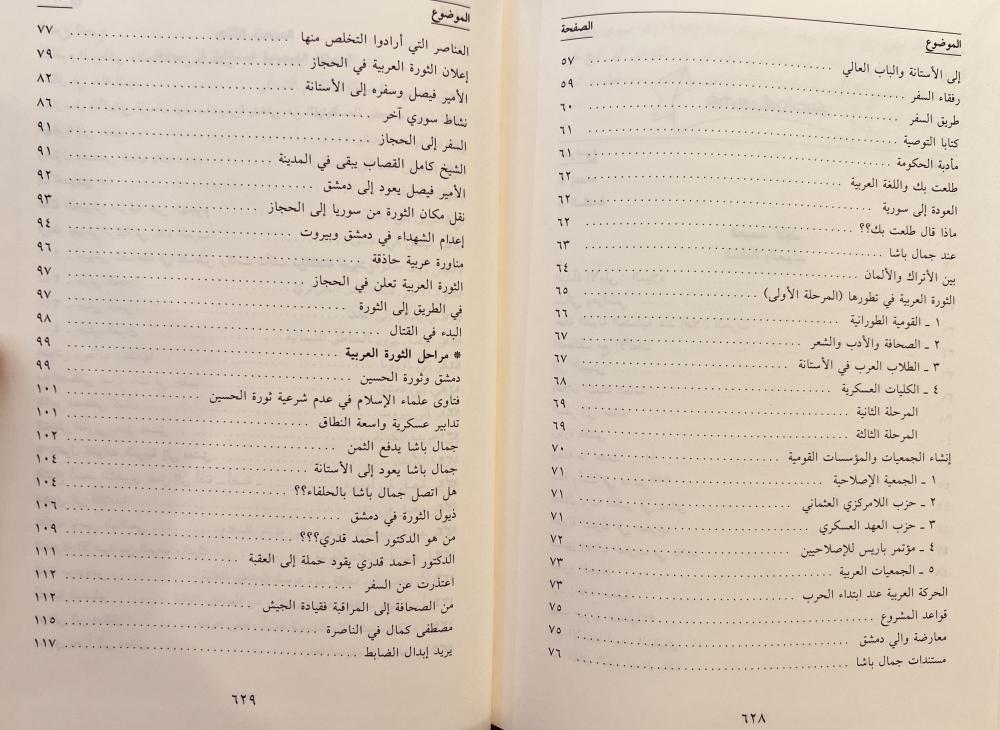 الموضوع الصفحة
إلى الأستانة والباب العالي ٥٧
رفقاء السفر ٥٩
طريق السفر ٦٠
كتابا التوصية ٦١
مأدبة الحكومة ٦١
طلعت بك واللغة العربية ٦٢
العودة إلى سورية ٦٢
ماذا قال طلعت بك؟؟ ٦٢
عند جمال باشا ٦٣
بين الأتراك والألمان ٦٤
الثورة العربية في تطورها (المرحلة الأولى) ٦٥
١ ـ القومية الطورانية ٦٦
٢ ـ الصحافة والأدب والشعر ٦٧
٣ ـ الطلاب العرب في الأستانة ٦٧
٤ ـ الكليات العسكرية ٦٨
المرحلة الثانية ٦٩
المرحلة الثالثة ٦٩
إنشاء الجمعيات والمؤسسات القومية ٧٠
١ ـ الجمعية الإصلاحية ٧١
٢ ـ حزب اللامركزي العثماني ٧١
٣ ـ حزب العهد العسكري ٧١
٤ ـ مؤتمر باريس للإصلاحيين ٧٢
٥ ـ الجمعيات العربية ٧٣
الحركة العربية عند ابتداء الحرب ٧٣
قواعد المشروع ٧٥
معارضة والي دمشق ٧٥
مستندات جمال باشا ٧٦
٦٢٨
الموضوع
العناصر التي أرادوا التخلص منها ٧٧
إعلان الثورة العربية في الحجاز ٧٩
الأمير فيصل وسفره إلى الأستانة ٨٢
نشاط سوري آخر ٨٦
السفر إلى الحجاز ٩١
الشيخ كامل القصاب يبقى في المدينة ٩١
الأمير فيصل يعود إلى دمشق ٩٢
نقل مكان الثورة من سوريا إلى الحجاز ٩٣
إعدام الشهداء في دمشق وبيروت ٩٤
مناورة عربية حاذقة ٩٦
الثورة العربية تعلن في الحجاز ٩٧
في الطريق إلى الثورة ٩٧
البدء في القتال ٩٨
* مراحل الثورة العربية ٩٩
دمشق وثورة الحسين ٩٩
فتاوى علماء الإسلام في عدم شرعية ثورة الحسين ١٠١
تدابير عسكرية واسعة النطاق ١٠١
جمال باشا يدفع الثمن ١٠٢
جمال باشا يعود إلى الأستانة ١٠٤
هل اتصل جمال باشا بالحلفاء؟؟ ١٠٤
ذيول الثورة في دمشق ١٠٦
من هو الدكتور أحمد قدري؟؟؟ ١٠٩
الدكتور أحمد قدري يقود حملة إلى العقبة ١١١
اعتذرت عن السفر ١١٢
من الصحافة إلى المراقبة فقيادة الجيش ١١٢
مصطفى كمال في الناصرة ١١٥
يريد إبدال الضابط ١١٧
٦٢٩